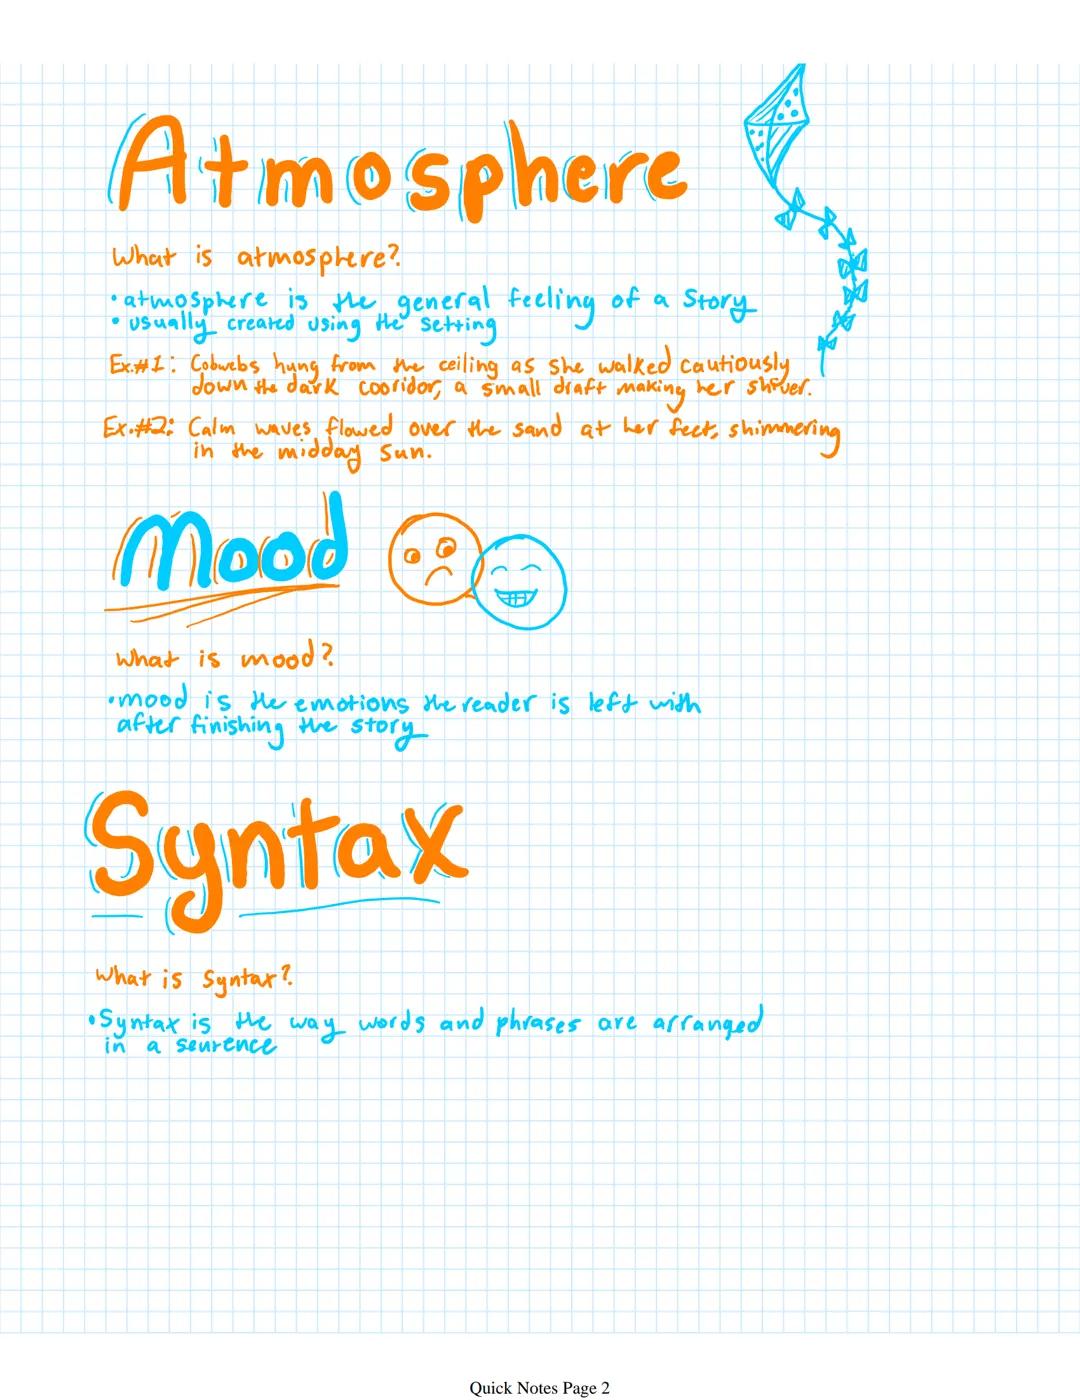 Atmosphere
What is atmosphere?
• atmosphere is the general feeling of a story
• usually created using the setting
Ex.#1: Cobwebs hung from the ceiling as she walked cautiously
down the dark cooridor, a small draft making her shiver.
Ex.#2: Calm waves flowed over the sand at her feet, shimmering
in the midday sun.
Mood
What is mood?
• mood is the emotions the reader is left with
after finishing the story
Syntax
What is Syntax?
• Syntax is the way words and phrases are arranged
in a sentence
Quick Notes Page 2